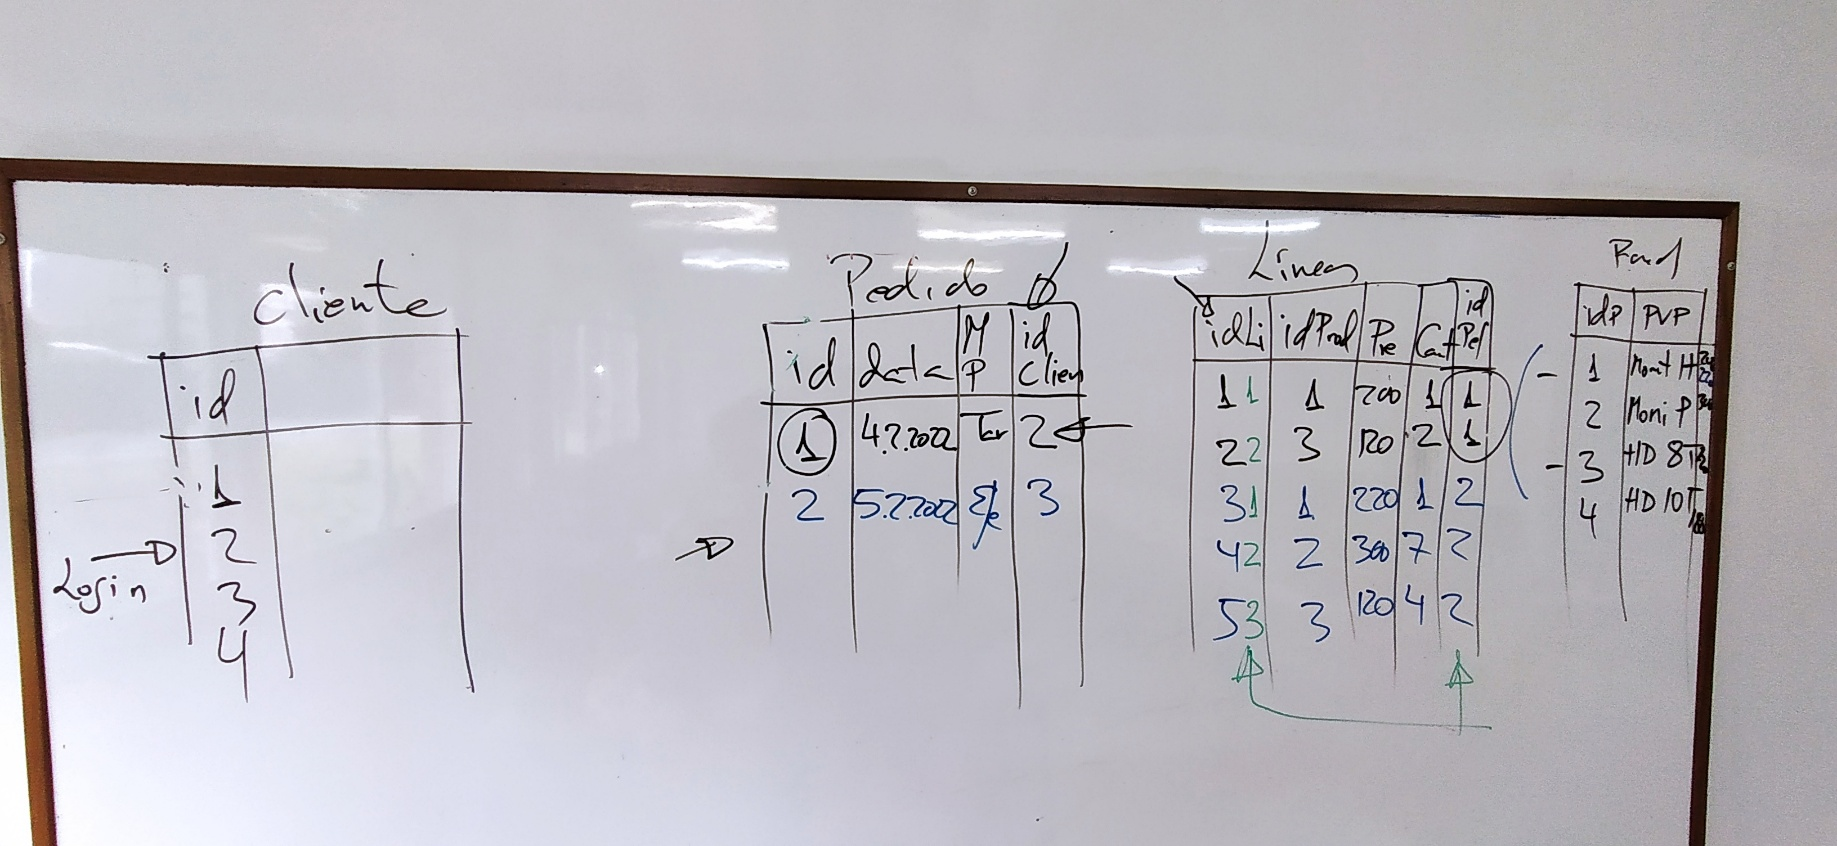 Cliente
id
1
2
3
4
Login
Pedido
id data M P id Clien
1 4.2.2022 Tar 2
2 5.2.2022 3
Lineas
idLi idProd Pre Cant id Ped
1 1 1 200 1 1
2 2 3 120 2 1
3 1 1 220 1 2
4 2 2 300 7 2
5 3 3 120 4 2
idP PVP
1 Monit H
2 Moni P
3 HD 8T
4 HD 10T